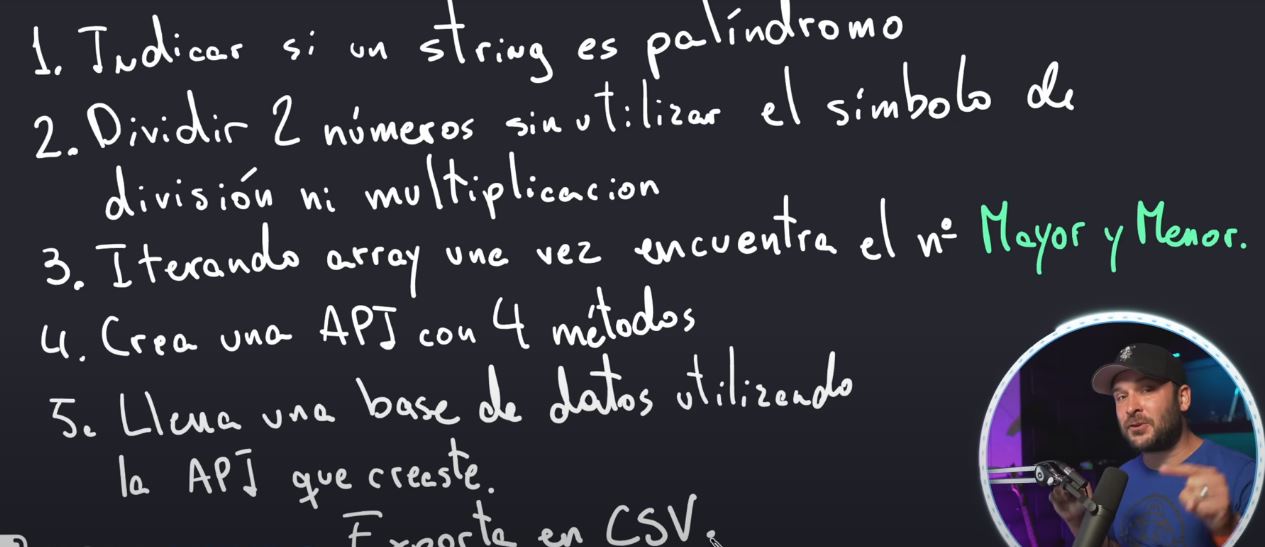 1. Indicar si un string es palíndromo
2. Dividir 2 números sin utilizar el símbolo de
división ni multiplicacion
3. Iterando array una vez encuentra el nº Mayor y Menor.
4. Crea una API con 4 métodos
5. Llena una base de datos utilizando
la API que creaste.
Exporta en CSV.